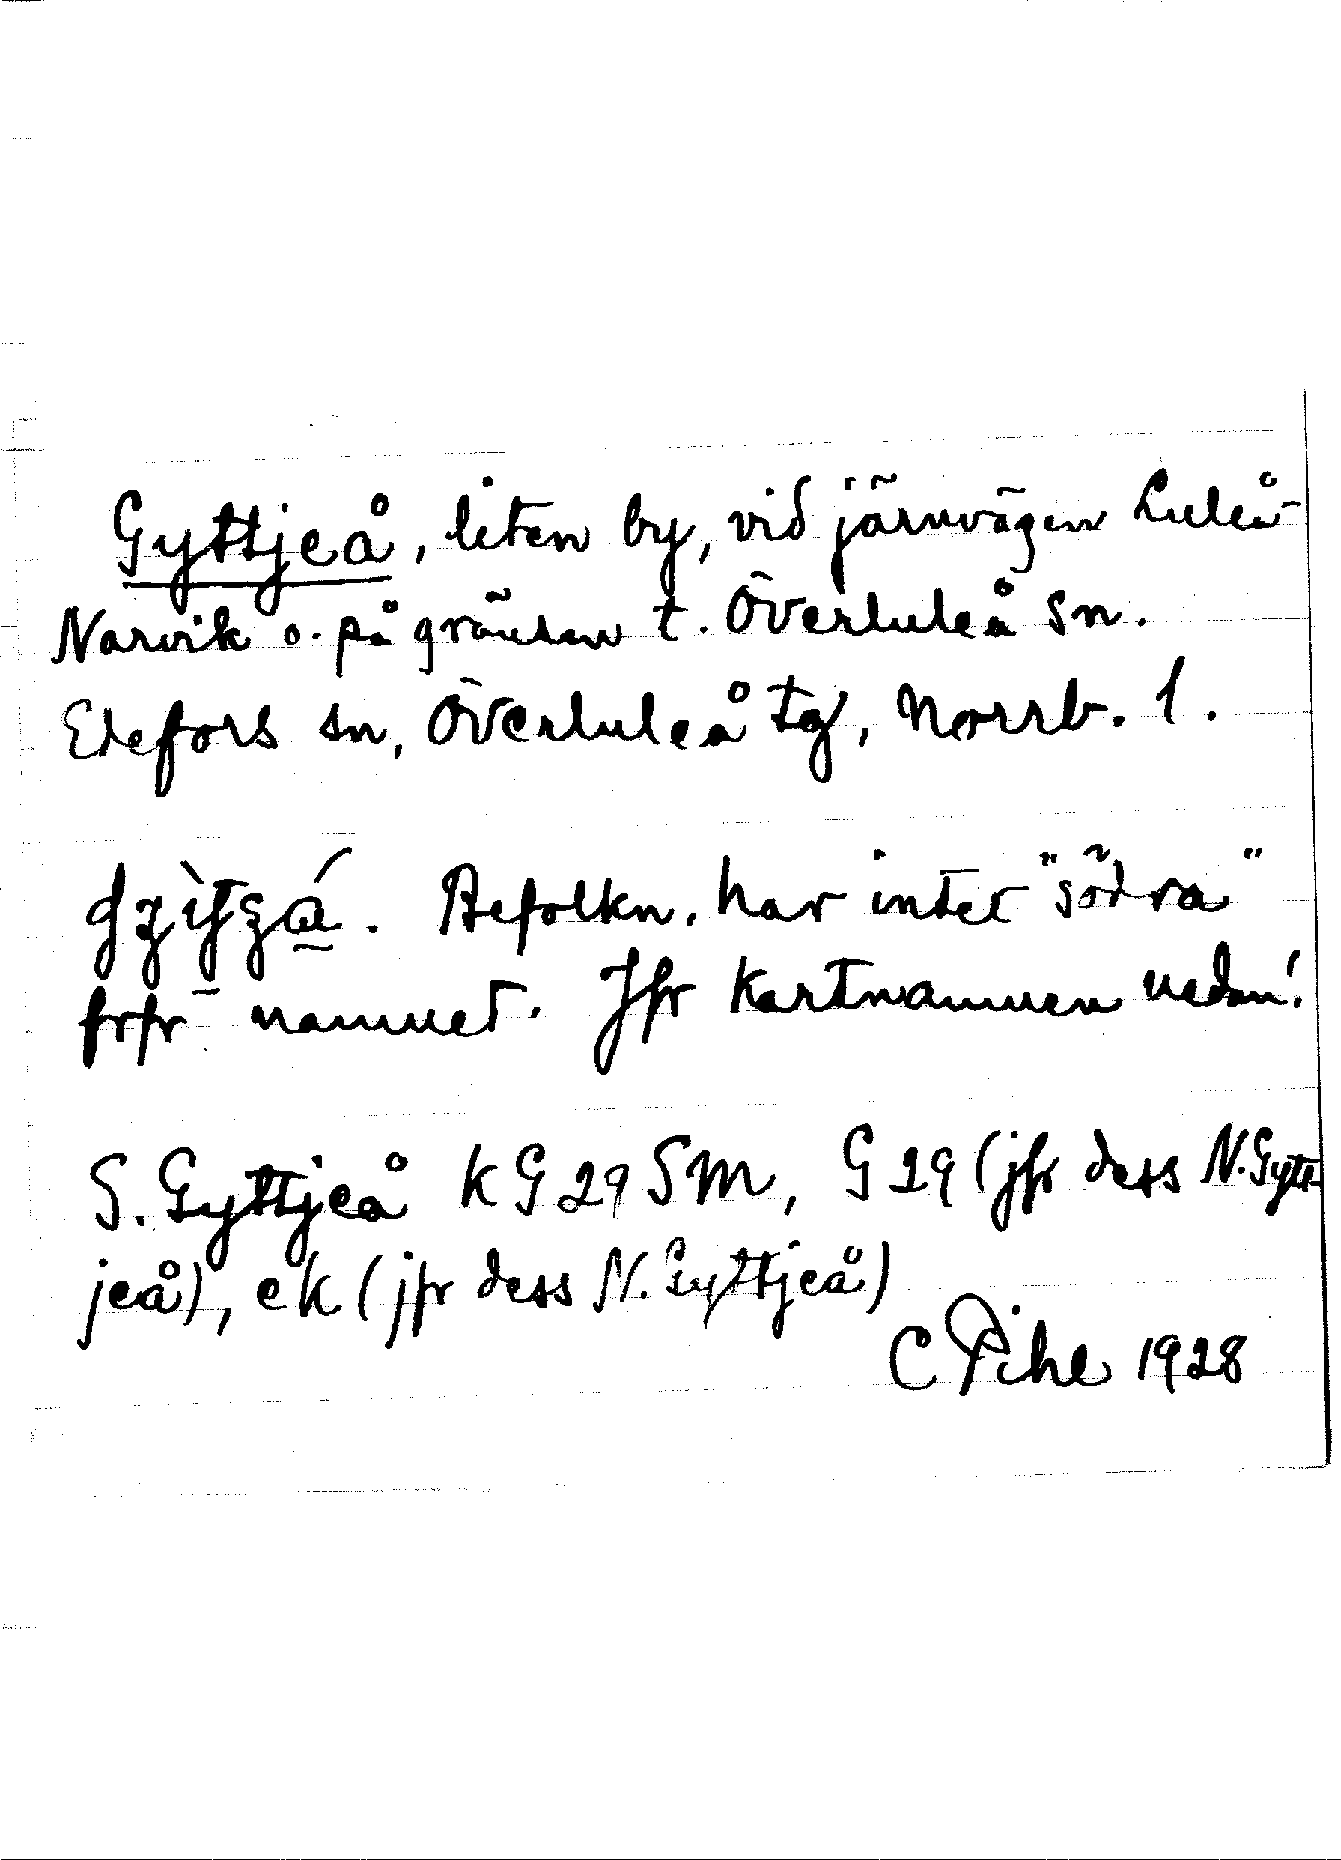 Gyttjeå, liten by, vid järnvägen Luleå-
Narvik o. på gränsen t. Överluleå sn.
Edefors sn, Överluleå tg, Norrb. l.
Befolkn. har intet "södra"
frfr namnet. Jfr kartnamnen nedan!
S. Gyttjeå KG29SM, G29 (jfr dess N. Gytt-
jeå), ek (jfr dess N. Gyttjeå)
C Pihl 1928